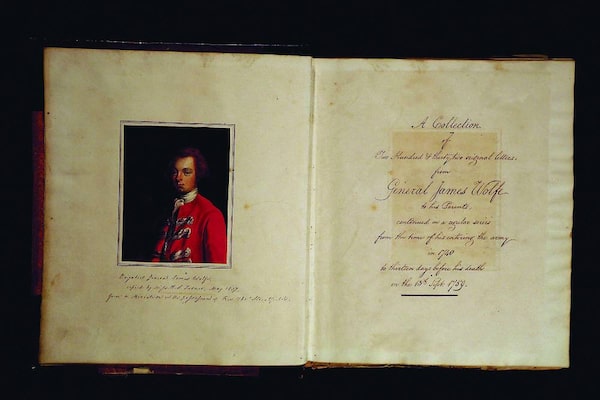 Brigadier General James Wolfe,
copied by May 1857.
from a Miniature in the possession of
A Collection
of
Two Hundred & thirty two original letters
from
General James Wolfe
to his Parents,
continued in a regular series
from the time of his entering the army
in 1740
to thirteen days before his death
on the 13th Sept. 1759.